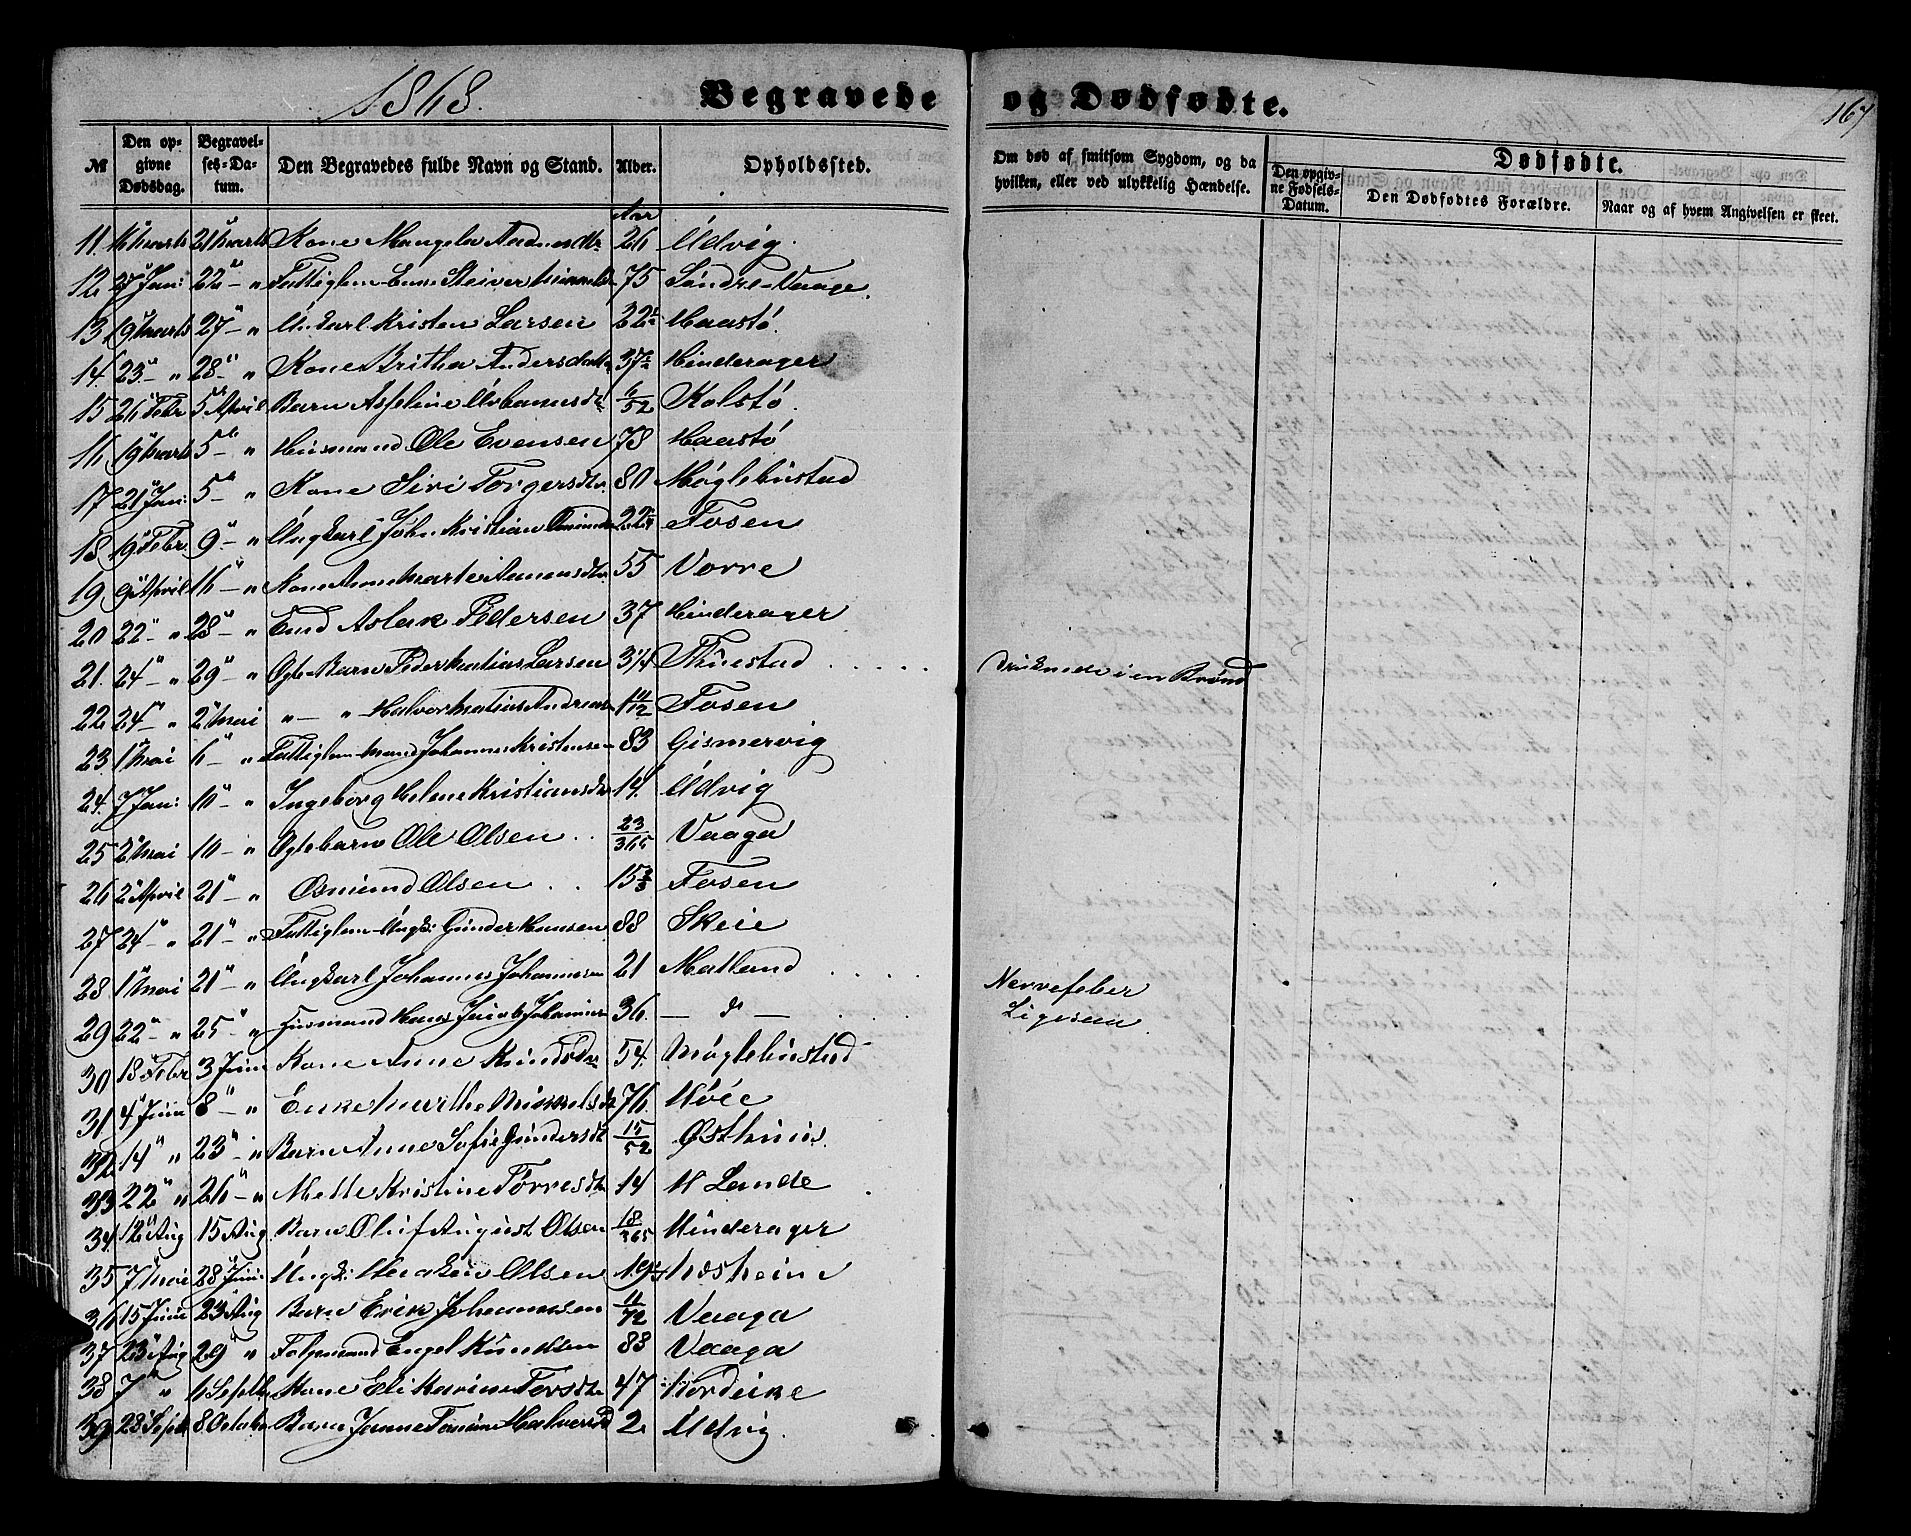 1868. Begravede og Dødfødte. 167
№ Den opgivne Dødsdag. Begravelses-Datum. Den Begravedes fulde Navn og Stand. Alder. Opholdssted. Om død af smitsom Sygdom, og da hvilken, eller ved ulykkelig Hændelse. Dødfødte. Den opgivne Fødsels-Datum. Den Dødfødtes Forældre. Naar og af hvem Angivelsen er skeet.
Aar
11. 16 Marts 21 Marts Kone Mangela 26 Udvig.
12 27 Jan: 22 - " Fattiglem Enke 75 Søndre-Vaage.
13 19 Marts 27 - " Ungkarl Kristen Larsen 22 Haastø.
14. 23 - " 28 - " Kone Britha Andersdatter 37 Hinderager
15 26 Febr 5 April Barn Asseline Urbanusdtr 6/52 Kolstø.
16 19 Marts 5 - " Huusmand Ole Evensen 78 Haastø
17 21 Jan: 5 - " Kone Siri Torgersdtr. 80 Møglebustad
18 19 Febr 9 - " Ungkarl John Kristian 22 Fosen
19 9 April 16 - " Kone Anne Marte 55 Vorre
20 22 - " 28 - " Emd Aslak Pedersen 37 Hinderager
21. 24 - " 29 - " Ogte-Barn Peder Matias Larsen 3 1/4 Thuestad . . . . . Druknede i en Brønd
22 24 - " 2 Mai " - " Halvor Matias Andreas 11/12 Fosen
23. 1 Mai 6 - " Fattiglem Mand Johannes Kristensen 83 Gismervig
24. 7 Jan: 10 - " Ingeborg Helene Kristiansdtr 14. Udvig
25 2 Mai 10 - " Ogtebarn Ole Olsen . . 23/365 Vaaga
26 2 April 21 - " Osmund Olsen . . 15 Fosen
27 24 - " 21 - " Fattiglem-Ungk: Gunder Hansen 88 Skeie
28 1 Mai 21 - " Ungkarl Johannes Johannesen 21 Matland . . . . Nervefeber
29 22 - " 25 - " Husmand Hans Jacob Johannes 36. — d° — . . . . Ligesaa
30 18 Febr 3 Juni Kone Anne Knudsdtr 54. Møglebustad
31 4 Juni 8 - " Enke Marthe Mikkelsdtr 76. Høie
32 14 " 23 - " Barn Anne Sofie Gundersdtr 15/52 Østhuus.
33 22 " 26 - " Mette Kristine Torresdtr 14 H Lande .
34. 12 Aug 15 Aug. Barn Oluf August Olsen 18/365 Hinderager
35 7 Mai 28 Juni Ungk: Haaken Olsen 19 Mosheim
36 15 Juni 23 Aug Barn Erik Johannessen 11/72 Vaaga
37 23 Aug 29 " Følgemand Engel Knudsen 88 Vaaga
38 7 " 6 Septbr Kone Eli Karine Torsdtr 47 Nordeike
39 28 Septbr 8 October Barn Janne Tomine 2. Udvig.